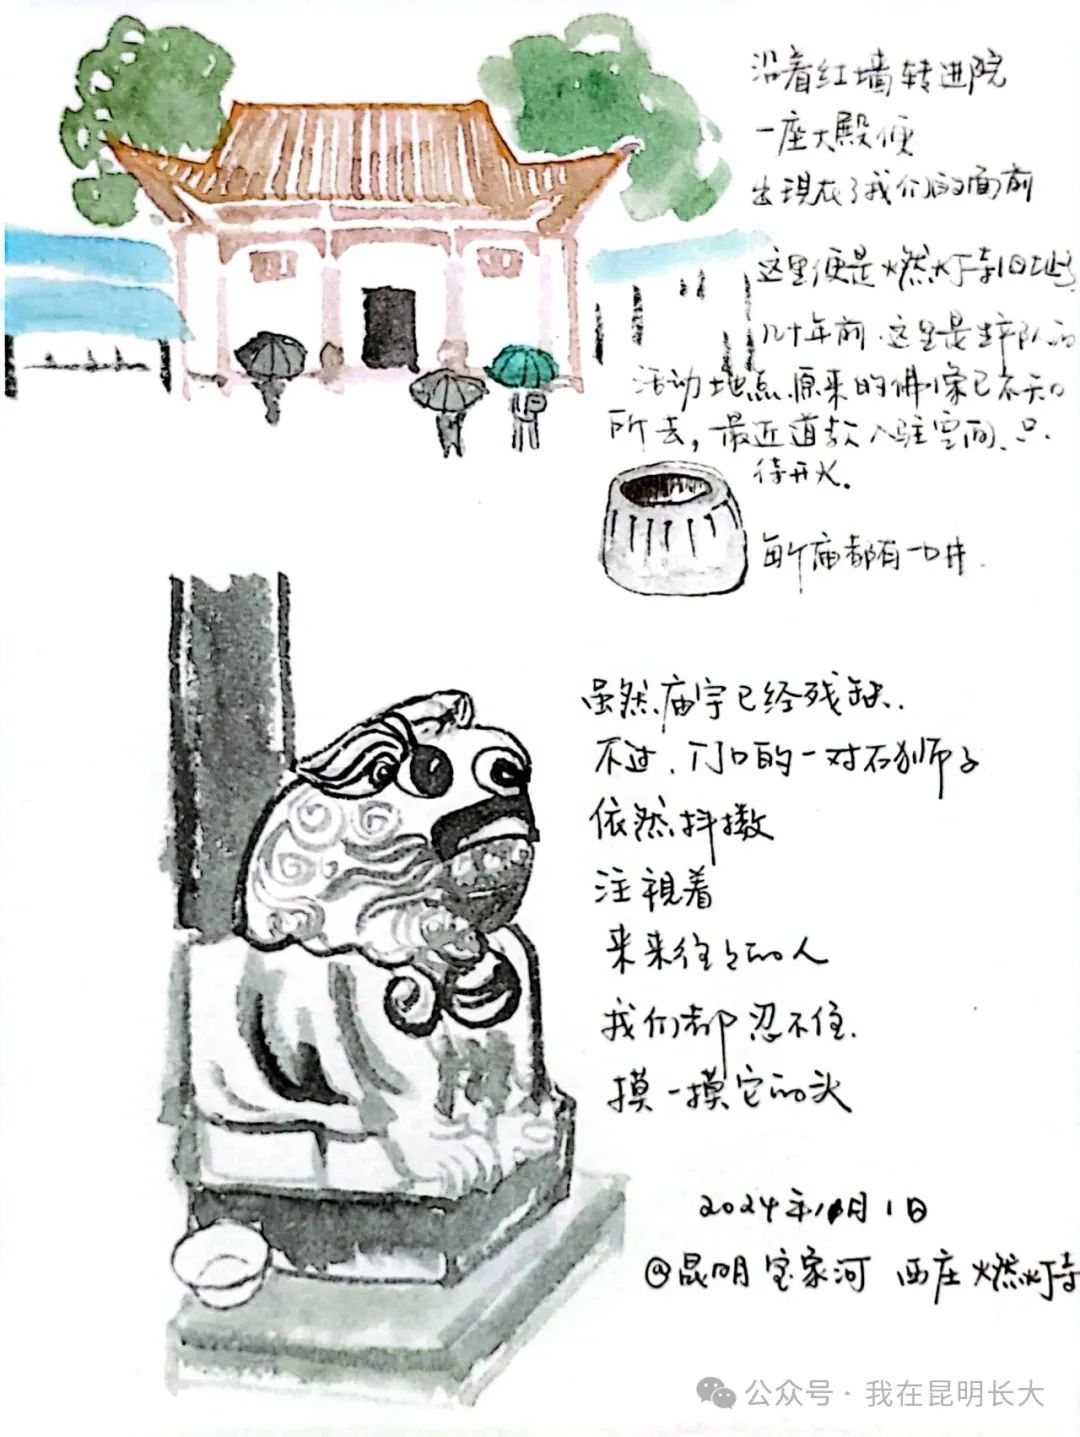 沿着红墙转进院
一座大殿便
出现在了我们的面前
这里便是燃灯寺旧址
几十年前.这里是生产队的
活动地点.原来的佛像已不知
所去，最近道教入驻空间.只
待开火.
每个庙都有一口井.
虽然庙宇已经残缺.
不过.门口的一对石狮子
依然抖擞
注視着
来来往往的人
我们都忍不住.
摸一摸它的头
2024年 月1日
@昆明宝象河 西庄燃灯寺
公众号·我在昆明长大